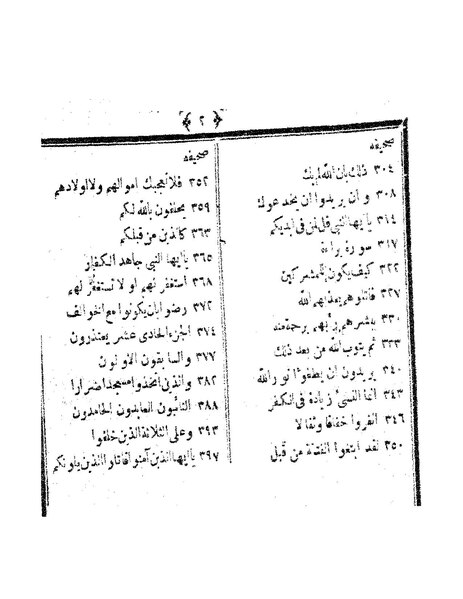 ﴿ ٢ ﴾
صحيفه
٣٠٤ ذلك بان الله لم يك
٣٠٨ وان يريدوا ان يخدعوك
٣١٤ يا ايها النبي قل لمن في ايديكم
٣١٧ سورة براءة
٣٢٢ كيف يكون للمشركين
٣٢٧ قاتلوهم يعذبهم الله
٣٣٠ يبشرهم ربهم برحمة منه
٣٣٣ ثم يتوب الله من بعد ذلك
٣٤٠ يريدون ان يطفؤا نور الله
٣٤٣ انما النسئ زيادة في الكفر
٣٤٦ انفروا خفافا وثقالا
٣٥٠ لقد ابتغوا الفتنة من قبل
صحيفه
٣٥٢ فلا تعجبك اموالهم ولا اولادهم
٣٥٩ يحلفون بالله لكم
٣٦٣ كالذين من قبلكم
٣٦٥ يا ايها النبي جاهد الكفار
٣٦٨ استغفر لهم او لا تستغفر لهم
٣٧٢ رضوا بان يكونوا مع الخوالف
٣٧٤ الجزء الحادى عشر يعتذرون
٣٧٧ والسابقون الاولون
٣٨٢ والذين اتخذوا مسجدا ضرارا
٣٨٨ التائبون العابدون الحامدون
٣٩٣ وعلى الثلاثة الذين خلفوا
٣٩٧ يا ايها الذين آمنوا قاتلوا الذين يلونكم